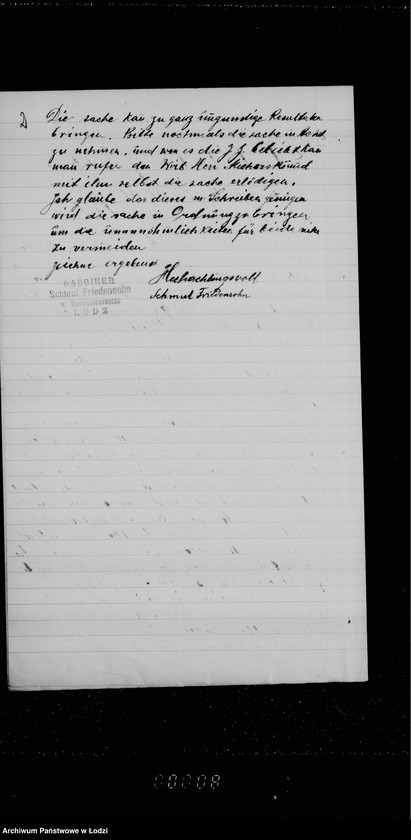 2
Die sache kan zu ganz ungunstige Resultaten
bringen. Bitte nochmals die sache in Acht
zu nehmen, und wen es die J. J. kan
man rufen den Herr
mit ihm selbst die sache erlödigen.
Ich glaube das dieses m. Schreiben genügen
wird die sache in Ordnung zu bringen
um die unannehmlichkeiten für beide
zu vermeiden
zeichne ergebend
Hochachtungsvoll
Schmul Fridensohn
RABBINER
Schmul Friedensohn
LODZ
00008
Archiwum Państwowe w Łodzi